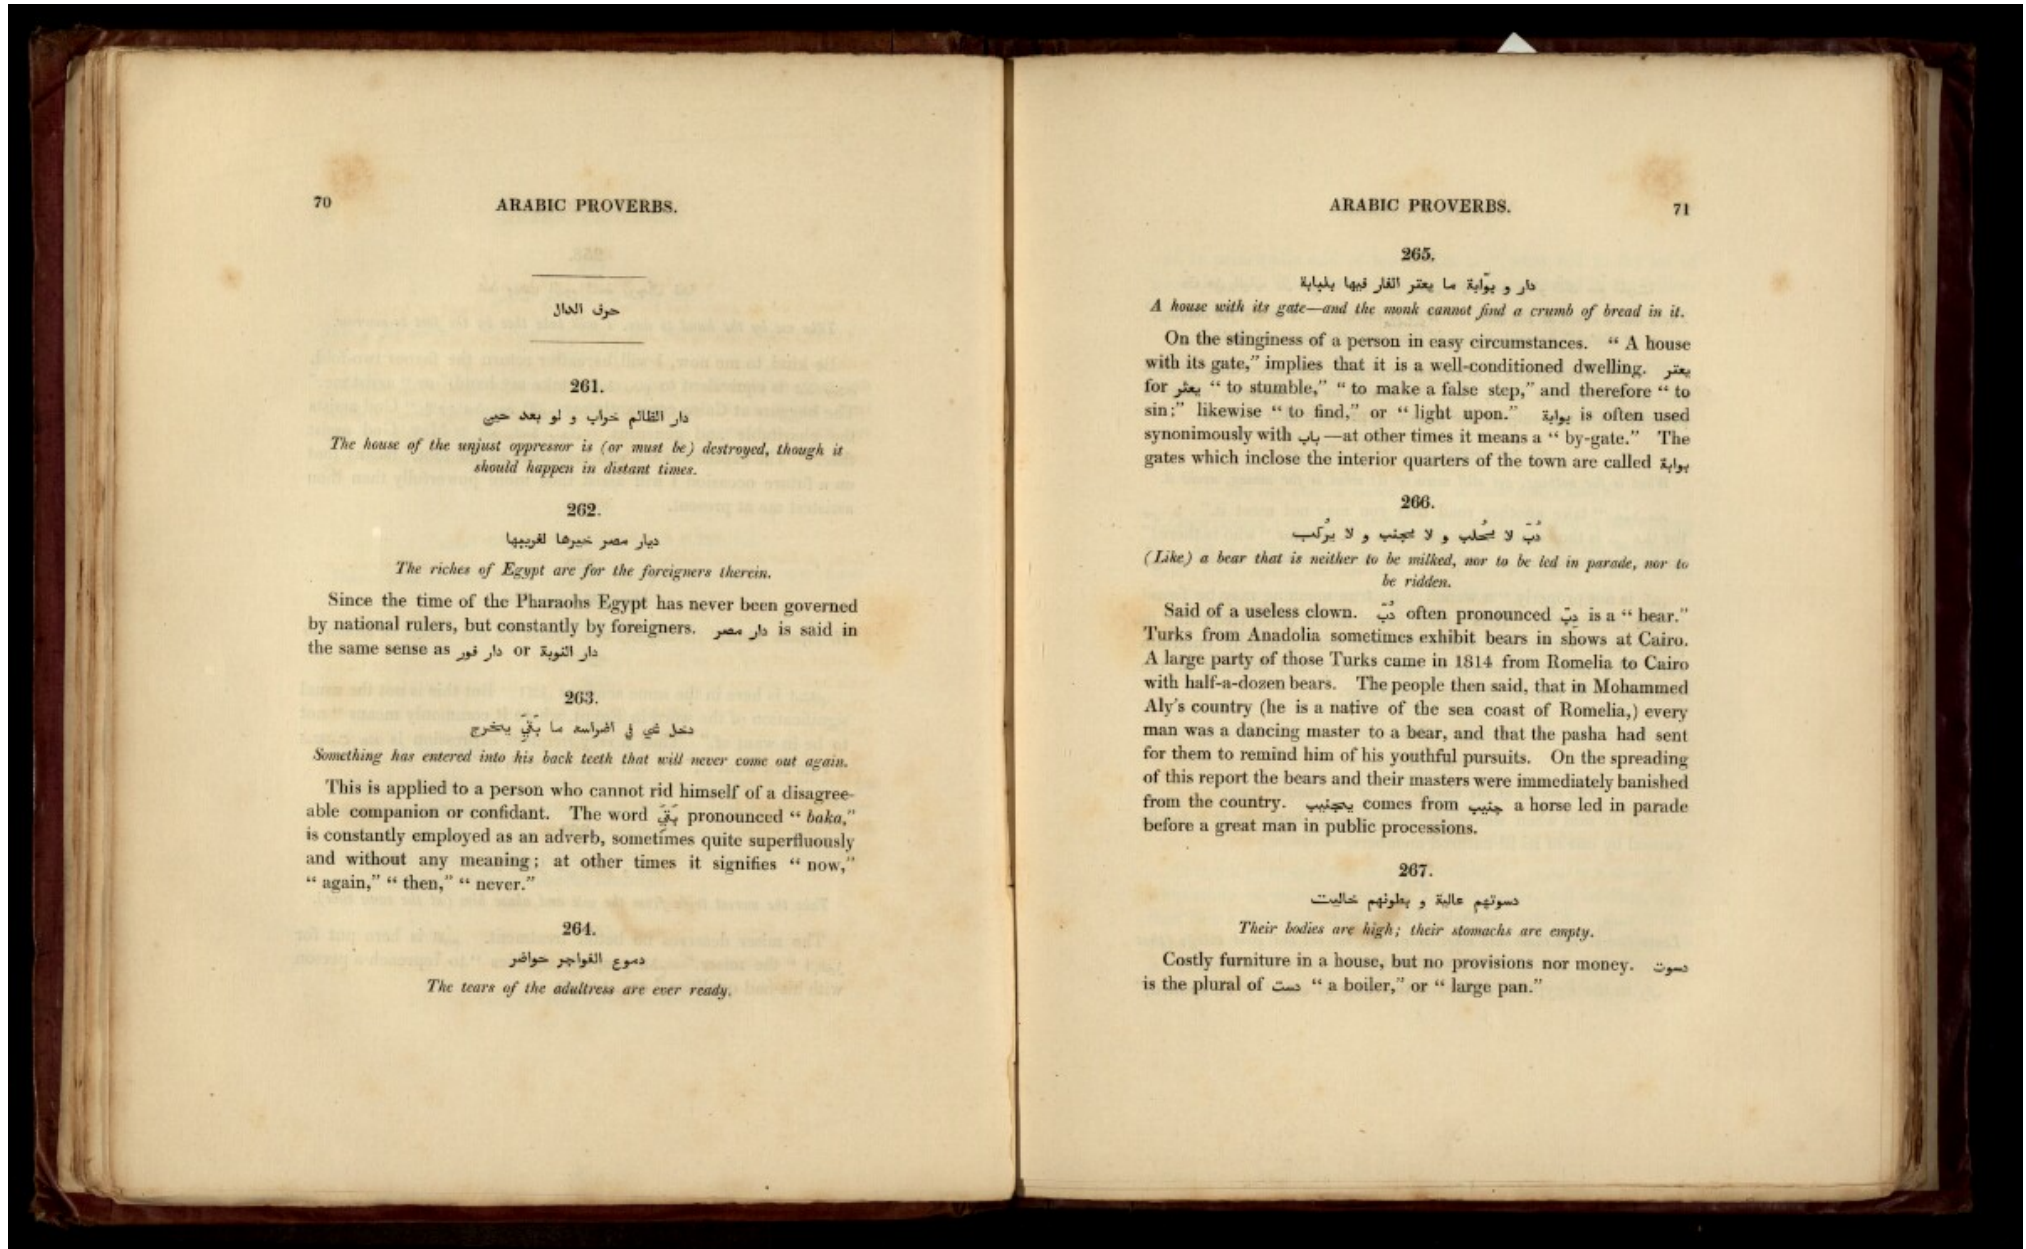 70
ARABIC PROVERBS.
حرف الدال
261.
دار الظالم خراب و لو بعد حين
The house of the unjust oppressor is (or must be) destroyed, though it
should happen in distant times.
262.
ديار مصر خيرها لغريبها
The riches of Egypt are for the foreigners therein.
Since the time of the Pharaohs Egypt has never been governed
by national rulers, but constantly by foreigners. دار مصر is said in
the same sense as دار فور or دار النوبة
263.
دخل شي في اضراسه ما بَقَيّ يخرج
Something has entered into his back teeth that will never come out again.
This is applied to a person who cannot rid himself of a disagree-
able companion or confidant. The word بَقَيّ pronounced “ baka,”
is constantly employed as an adverb, sometimes quite superfluously
and without any meaning; at other times it signifies “ now,”
“ again,” “ then,” “ never.”
264.
دموع الفواجر حواضر
The tears of the adultress are ever ready.
ARABIC PROVERBS.
71
265.
دار و بوّابة ما يعتر الفار فيها بلبابة
A house with its gate—and the monk cannot find a crumb of bread in it.
On the stinginess of a person in easy circumstances. “ A house
with its gate,” implies that it is a well-conditioned dwelling. يعتر
for يعثر “ to stumble,” “ to make a false step,” and therefore “ to
sin;” likewise “ to find,” or “ light upon.” بوابة is often used
synonimously with باب—at other times it means a “ by-gate.” The
gates which inclose the interior quarters of the town are called بوابة
266.
دُبّ لا يُحلب و لا يجنب و لا يُركب
(Like) a bear that is neither to be milked, nor to be led in parade, nor to
be ridden.
Said of a useless clown. دُبّ often pronounced دِبّ is a “ bear.”
Turks from Anadolia sometimes exhibit bears in shows at Cairo.
A large party of those Turks came in 1814 from Romelia to Cairo
with half-a-dozen bears. The people then said, that in Mohammed
Aly's country (he is a native of the sea coast of Romelia,) every
man was a dancing master to a bear, and that the pasha had sent
for them to remind him of his youthful pursuits. On the spreading
of this report the bears and their masters were immediately banished
from the country. يجنيب comes from جنيب a horse led in parade
before a great man in public processions.
267.
دسوتهم عالية و بطونهم خاليت
Their bodies are high; their stomachs are empty.
Costly furniture in a house, but no provisions nor money. دسوت
is the plural of دست “ a boiler,” or “ large pan.”